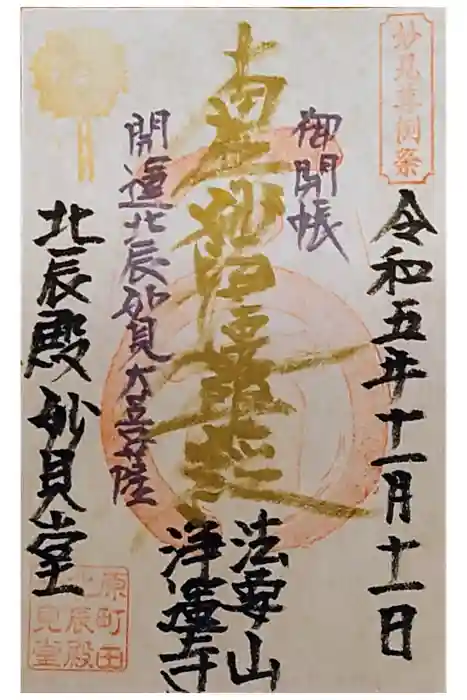 妙見善開祭
令和五年十一月十一日
御開帳
南無妙法蓮華経
法要山
浄蓮寺
開運北辰妙見大菩薩
北辰殿妙見堂
原町田
北辰殿
見堂